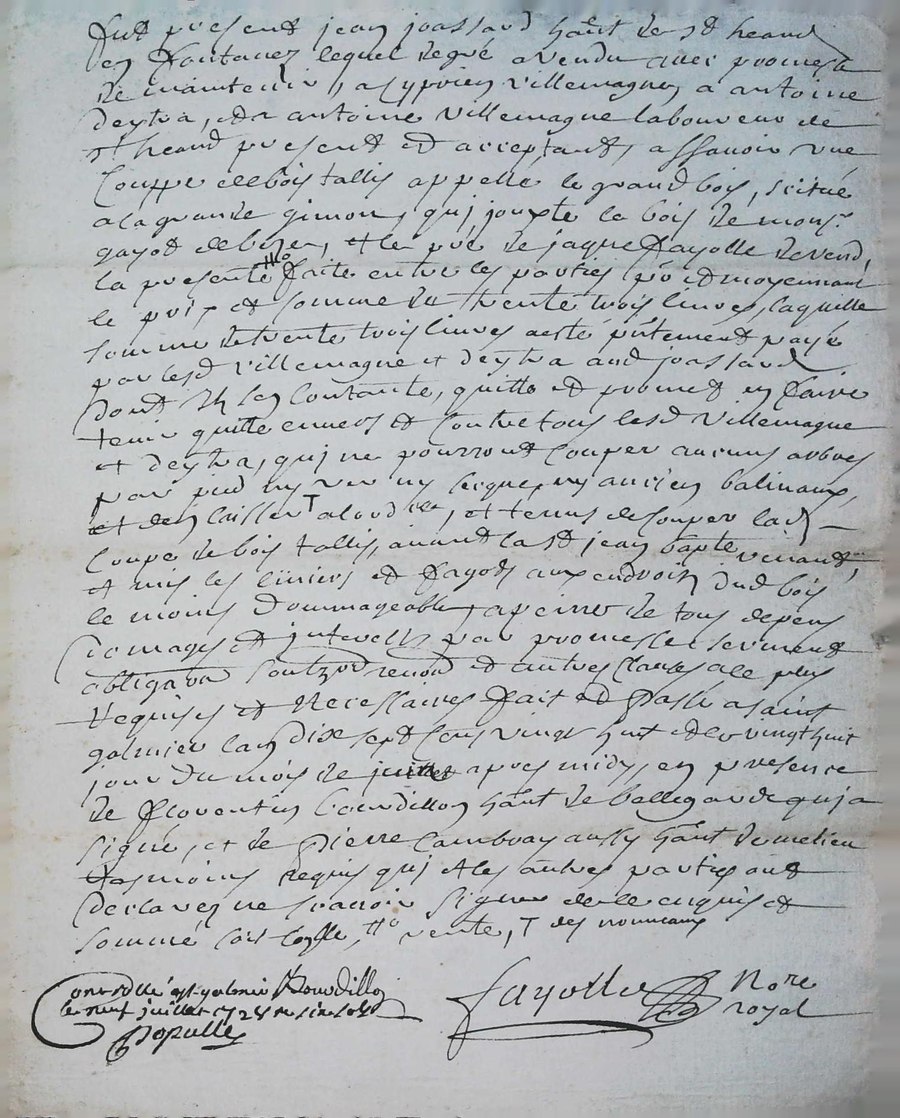 fut present jean joassard hãnt de st heand
en fontanes lequel de gré a vendu avec promesse
de maintenir, a cyprien villemagne, a antoine
deytra, et a antoine villemagne laboureur de
st heand present et acceptants, assavoir une
couppe de bois tallis appelle le grand bois, scitué
a la grande gimon, qui jouxte le bois de mons.r
gayot de la, et le pré de jaque fayolle devend,
la presente tt° faite entre les parties moyennant
le prix et somme de trente trois livres, laquelle
somme de trente trois livres a esté pñtement payé
par lesd villemagne et deytra aud joassard
dont il sen contante, quitte et promet en faire
tenir quitte envers et contre tous lesd villemagne
et deytra, qui ne pourront couper aucuns arbres
par pied ny ny ancien balivaux,
et den laisser T a lord.re, et tenus de couper lad
coupe de bois tallis, avant la st jean bapte venant,
et mis les et fagots aux endroits dud bois
le moins dommageable, a peine de tous depens
domages et interests par promesse serment
obligaõn renond et autres clauses a le plus
requises et necessaires fait et passé a saint
galmier lan dixe sept cens vingt huit et le vingt huit
jour du mois de juillet apres midy, en presence
de florentin bourdillon hãnt de bellegarde qui a
signé, et de pierre cambray aussy hãnt de melieu
tesmoins requis qui et les autres parties ont
declarez ne scavoir signer de ce enquis et
sommé, tt° vente, T des nouveaux
Controllé a st galmier Bourdillon
le neuf juillet 1728
Populle
fayolle Nore
royal